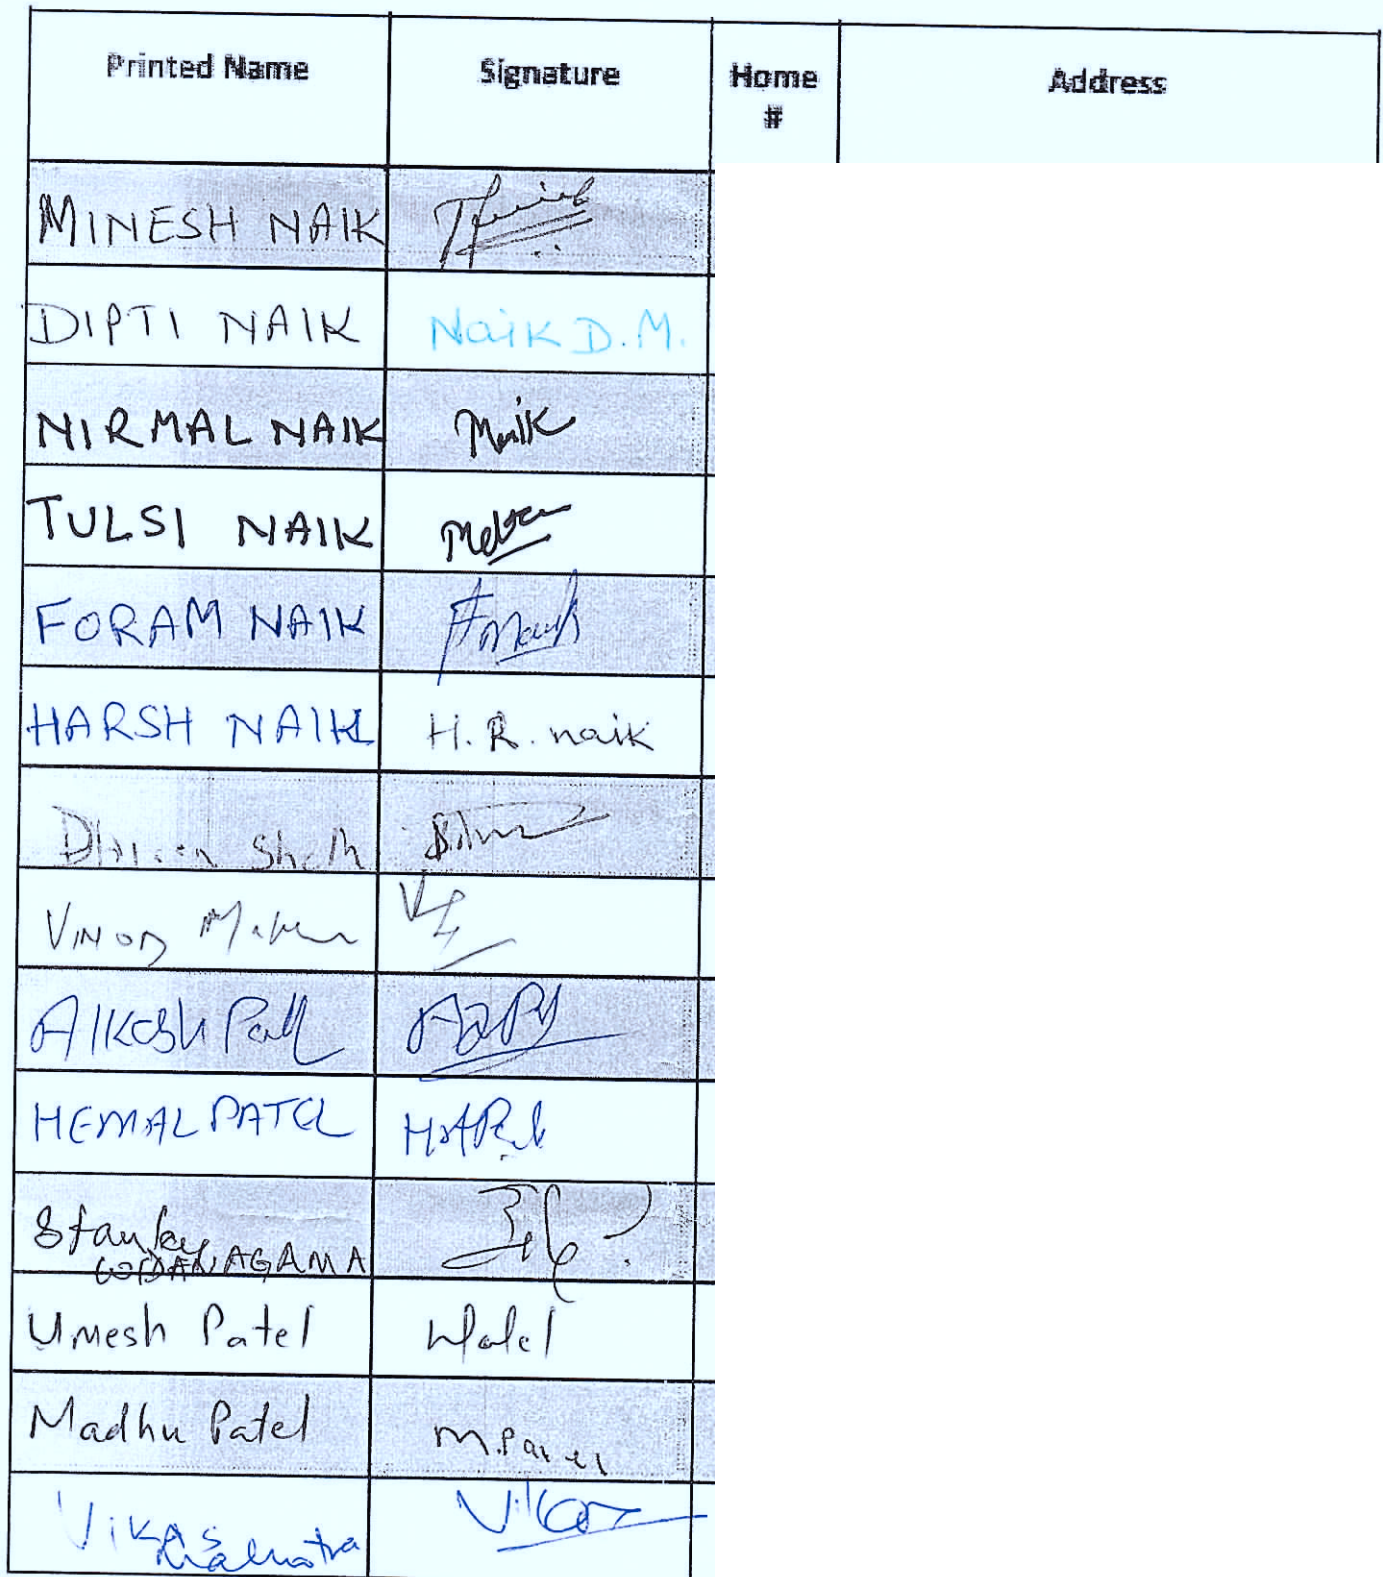 Printed Name Signature Home # Address
MINESH NAIK
DIPTI NAIK Naik D.M.
NIRMAL NAIK Naik
TULSI NAIK
FORAM NAIK
HARSH NAIK H.R. naik
Shah
VINOD
Alkesh Patel
HEMAL PATEL
Stanley
AGAMA
Umesh Patel UPatel
Madhu Patel M.Patel
Vikas Vikas
Malhotra